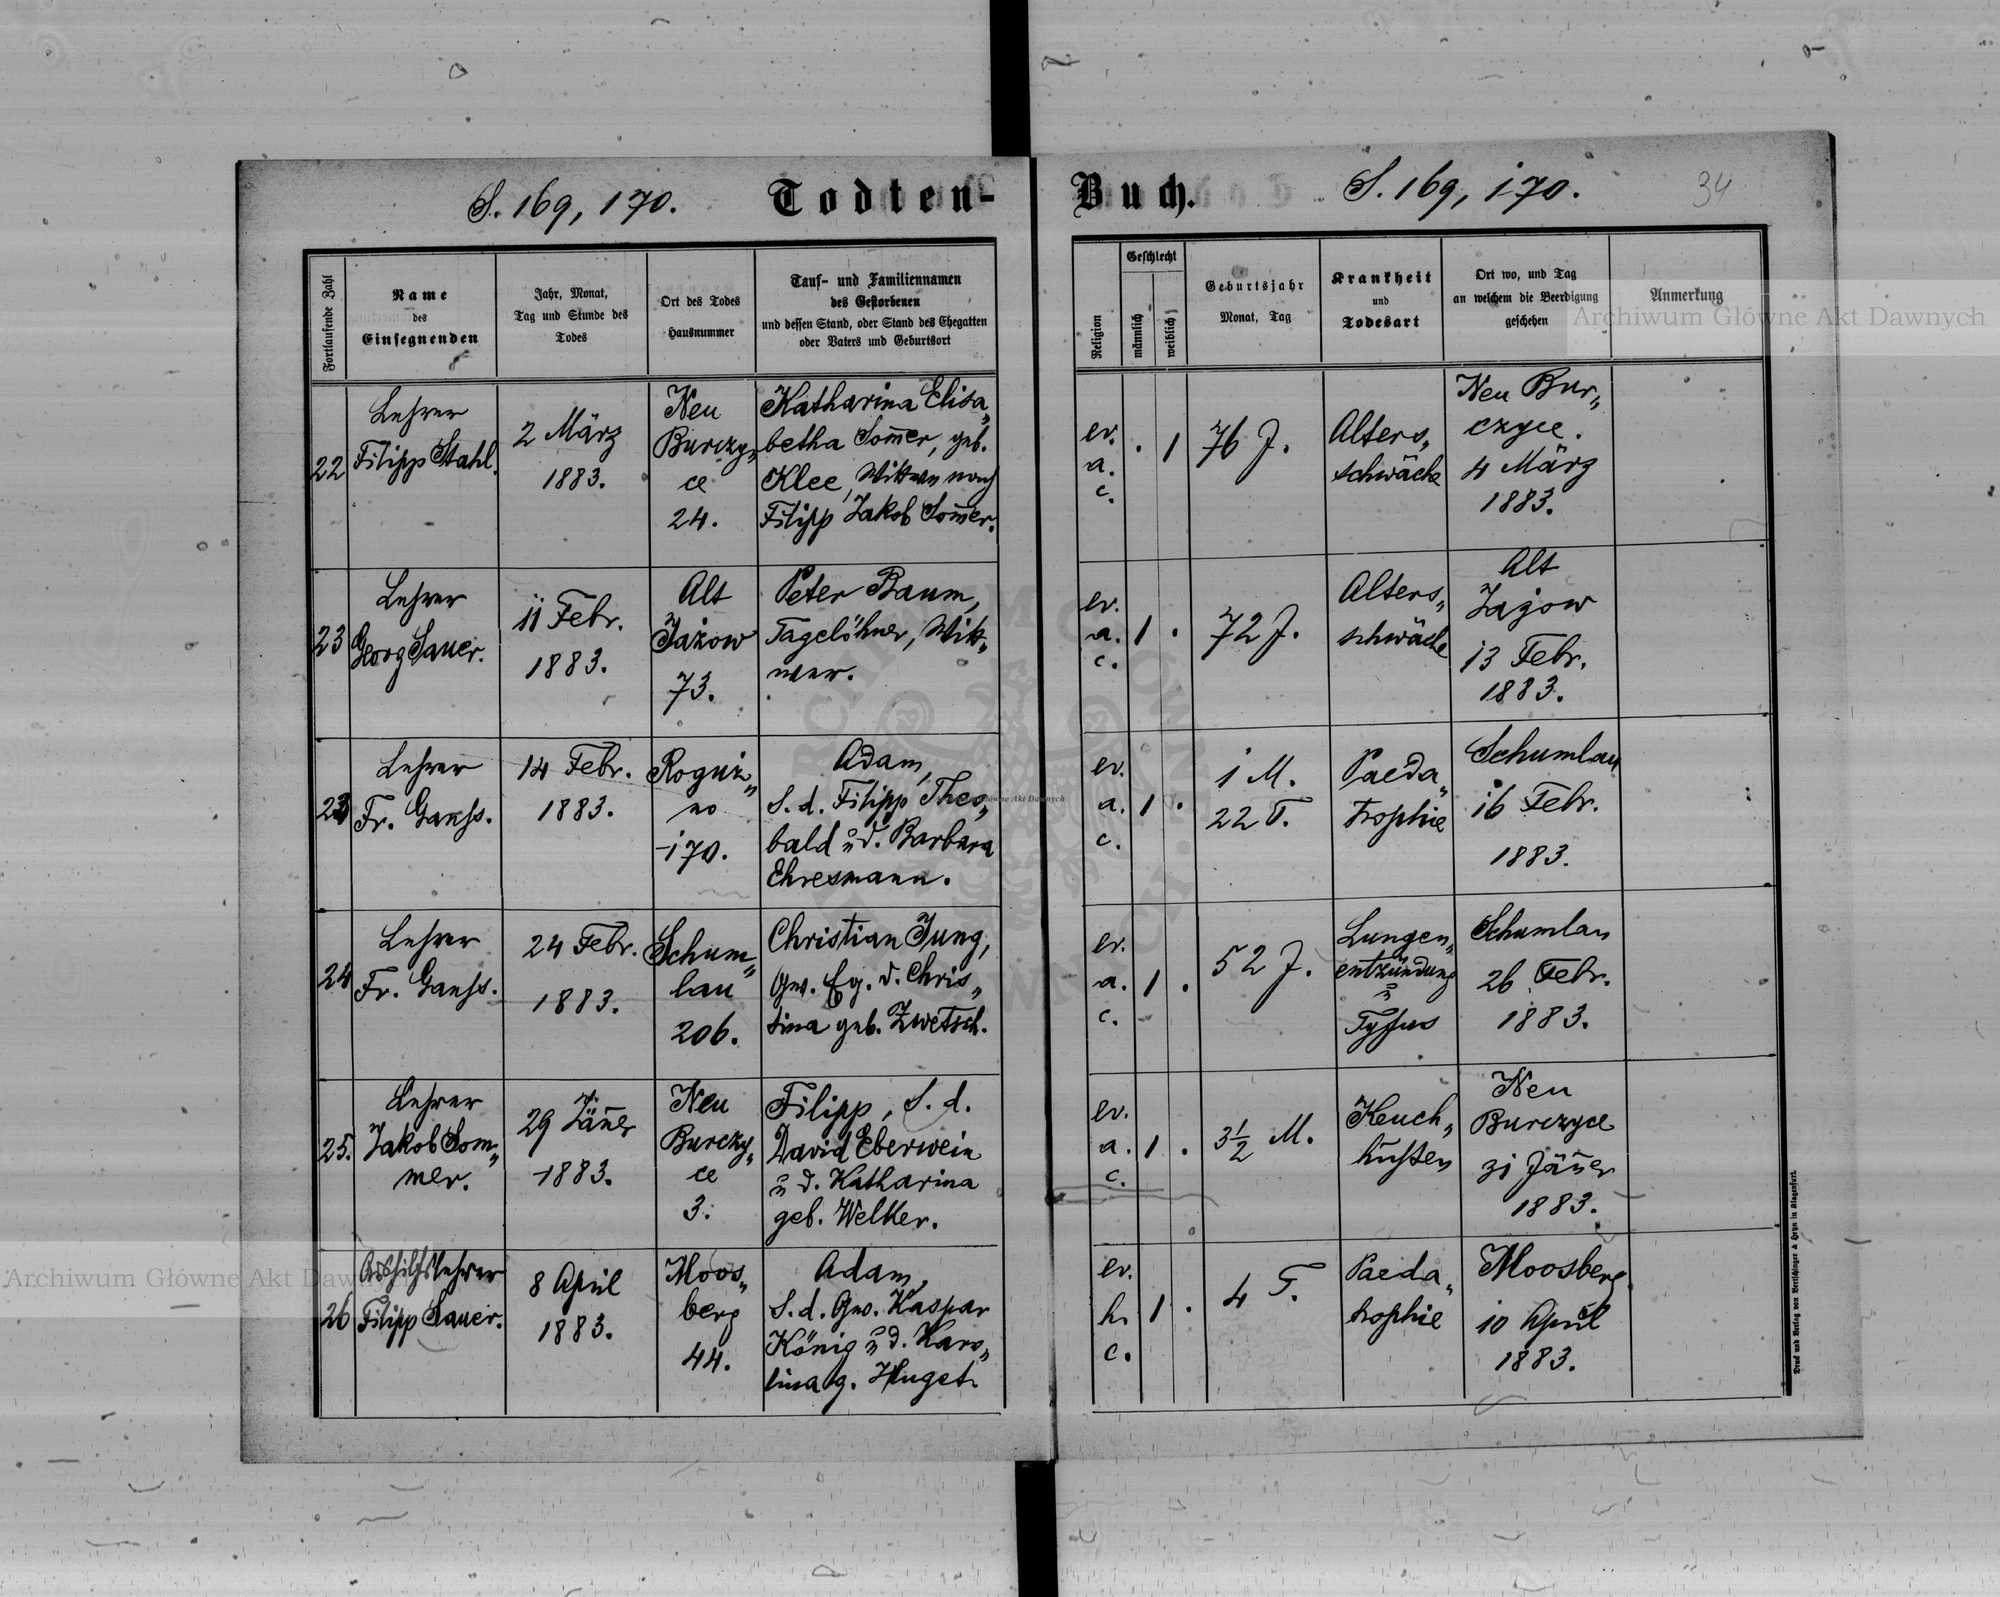 S. 169, 170.
Todten-
Buch.
S. 169, 170.
34
Fortlaufende Zahl
Name
des
Einsegnenden
Jahr, Monat,
Tag und Stunde des
Todes
Ort des Todes
Hausnummer
Tauf- und Familiennamen
des Gestorbenen
und dessen Stand, oder Stand des Ehegatten
oder Vaters und Geburtsort
Religion
Geschlecht
männlich
weiblich
Geburtsjahr
Monat, Tag
Krankheit
und
Todesart
Ort wo, und Tag
an welchem die Beerdigung
geschehen
Anmerkung
Archiwum Główne Akt Dawnych
22
Lehrer
Filipp Stahl.
2 März
1883.
Neu
Burczy„
ce
24.
Katharina Elisa„
betha Som̄er, geb.
Klee, Witwe nach
Filipp Jakob Som̄er.
ev.
a.
c.
. 1
76 J.
Alters„
schwäche
Neu Bur„
czyce.
4 März
1883.
23
Lehrer
Georg Sauer.
11 Febr.
1883.
Alt
Jażow
73.
Peter Baum,
Tagelöhner, Wit„
wer.
ev.
a.
c.
1 .
72 J.
Alters„
schwäche
Alt
Jażow
13 Febr.
1883.
23
Lehrer
Fr. Ganss.
14 Febr.
1883.
Roguż„
no
170.
Adam,
S. d. Filipp Theo„
bald u. d. Barbara
Ehresmann.
ev.
a.
c.
1 .
1 M.
22 T.
Paeda„
trophie
Schumlau
16 Febr.
1883.
24
Lehrer
Fr. Ganss.
24 Febr.
1883.
Schum„
lau
206.
Christian Jung,
Gw. Eg. d. Chris„
tina geb. Zwetsch.
ev.
a.
c.
1 .
52 J.
Lungen„
entzündung
u
Tyfus
Schumlau
26 Febr.
1883.
25.
Lehrer
Jakob Som„
mer.
29 Jän̄er
1883.
Neu
Burczy„
ce
3.
Filipp, S. d.
David Eberwein
u. d. Katharina
geb. Welker.
ev.
a.
c.
1 .
3½ M.
Keuch„
husten
Neu
Burczyce
31 Jän̄er
1883.
26
Aushilfslehrer
Filipp Sauer.
8 April
1883.
Moos„
berg
44.
Adam,
S. d. Gw. Kaspar
König u. d. Karo„
lina g. Huget.
ev.
h.
c.
1 .
4 T.
Paeda„
trophie
Moosberg
10 April
1883.
Archiwum Główne Akt Dawnych
Druck und Verlag von Bertschinger & Heyn in Klagenfurt.